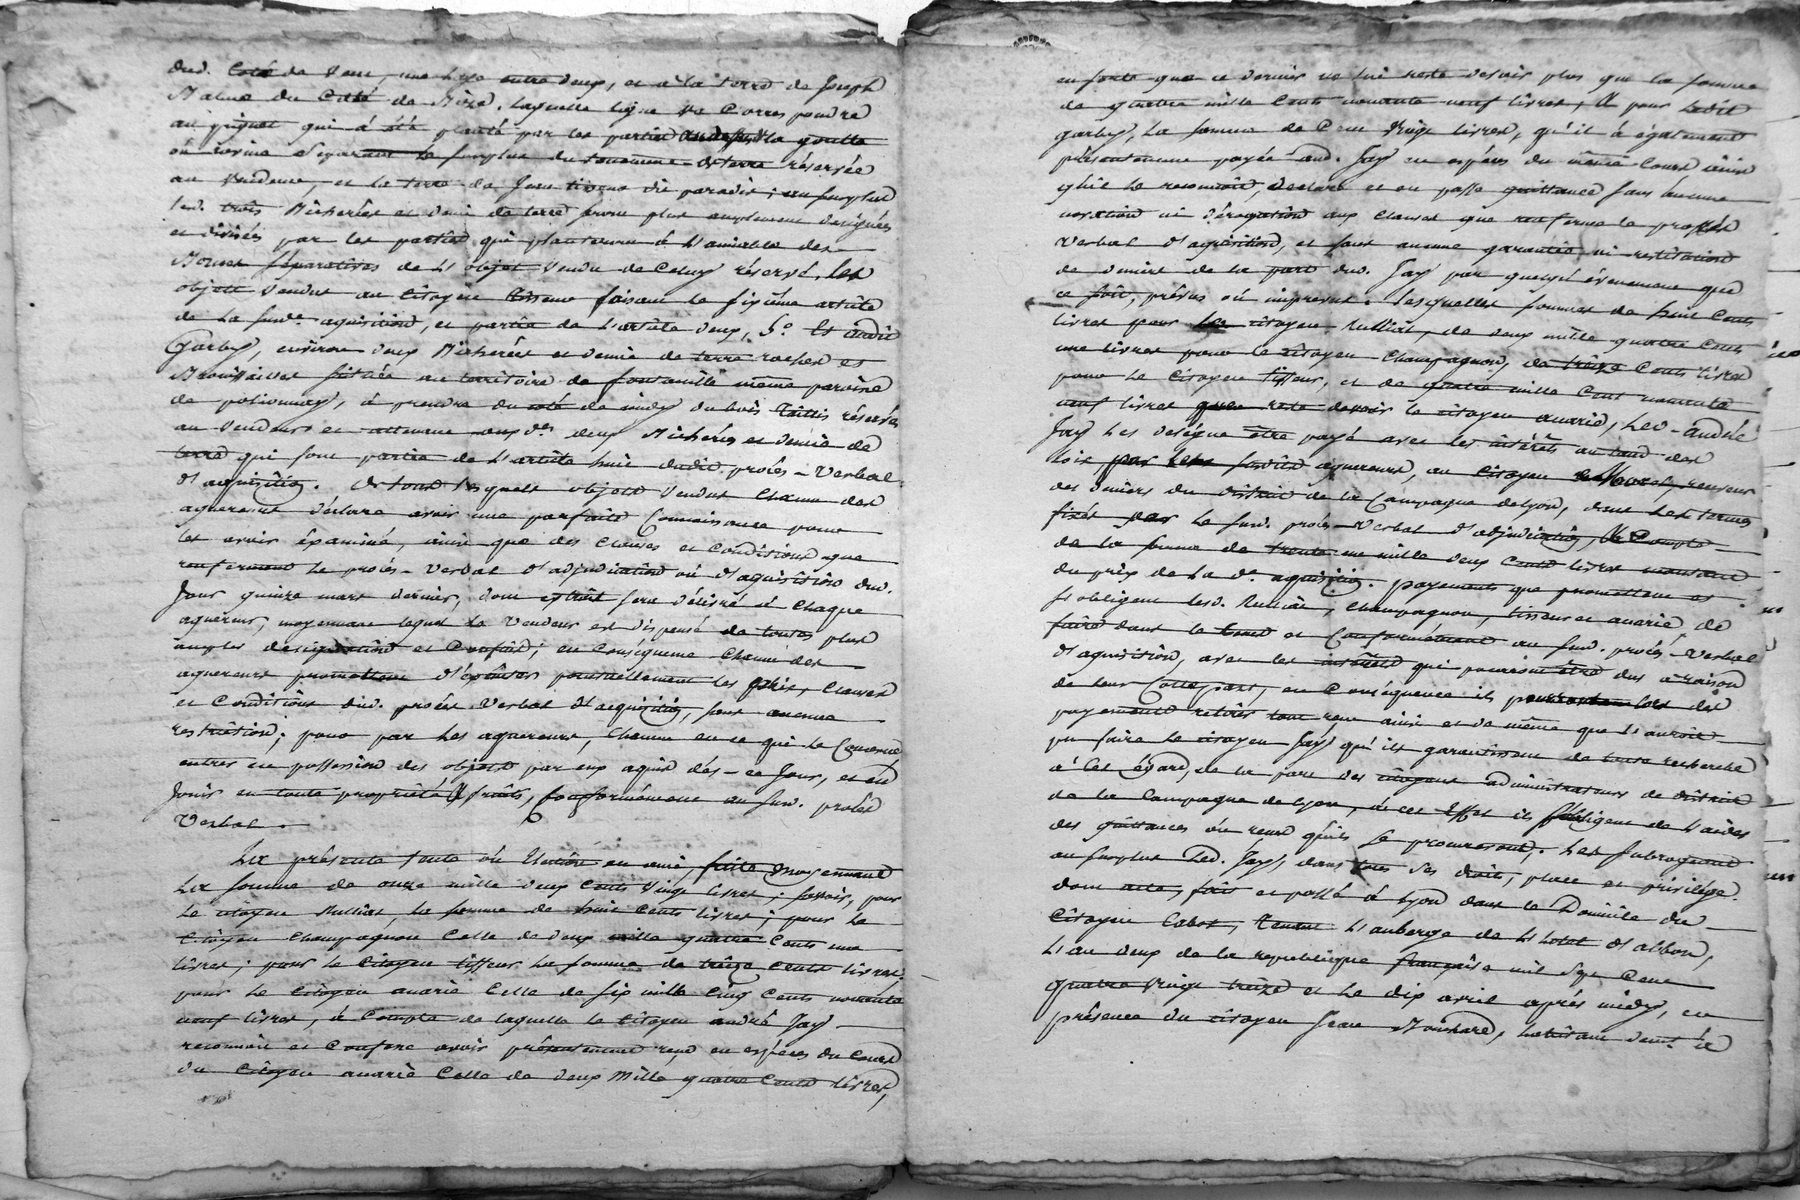 dud. Coté de vent, une haye entre deux, et à la terre de Joseph
du Coté de Bize, laquelle ligne va Correspondre
au piquet qui à été planté par les parties la goutte
ou ravine Séparant le surplus du tenement de terre réservée
au vendeur, et la terre de Jean ; au surplus
led. trois Bicherées et demie de terre seront plus amplement designées
et divisées par les parties qui planteront à l'amiable des
Bornes séparatives de l'objet vendu de Celuy réservé, les
objets vendus au Citoyen tisseur faisant le sixième article
de la susd.e aquisition, et partie de l'article deux, 5.° Et audit
environ deux Bicherées et demie de terre rochers et
Broussailles située au territoire de même paroisse
de pollionnay, à prendre du coté de midy du bois Taillis réservé
au vendeur et attenant aux d.es deux Bicherées et demie de
terre qui font partie de l'article huit dudit procès-verbal
d'aquisition. de tous lesquels objets vendus Chacun des
aquereurs déclare avoir une parfaite Connoissance pour
les avoir éxaminé, ainsi que des Clauses et Conditions que
renferment le procès-verbal d'adjudication ou d'aquisition dud.
Jour quinze mars dernier, dont extrait sera délivré à Chaque
aquereur, moyennant lequel le vendeur est dispensé de toutes plus
amples désignations et Confins ; en Conséquence Chacun des
aquereurs promettent d'éxécuter ponctuellement les prix, Clauses
et Conditions dud. procès-verbal d'aquisition, sans aucune
restriction ; pour par les aquereurs, Chacun en ce qui le Concerne,
entrer en possession des objets par eux aquis dès-ce Jour, et en
Jouir en toute propriété & fruits, Conformément au susd. procès
Verbal.
La présente vente ou Election en ami, faite moyennant
La somme de onze mille deux Cents vingt livres ; savoir, pour
le citoyen Mulliat, la somme de huit Cents livres ; pour le
Citoyen Champagnon Celle de deux mille quatre Cents une
livres ; pour le Citoyen tisseur la somme de treize Cents livres ;
pour le Citoyen avarié Celle de six mille Cinq Cents nonante
neuf livres, à Compte de laquelle le Citoyen andré Jay
reconnoit et Confesse avoir présentement reçu en espèces du Cours
du Citoyen avarié Celle de deux Mille quatre Cents livres,
en sorte que ce dernier ne lui reste devoir plus que la somme
de quatre mille Cents nonante neuf livres, & pour ledit
la somme de Cent vingt livres, qu'il à également
présentement payée aud. Jay en espèces du même Cours ainsi
qu'il le reconnoit, déclare et en passe quittance sans aucune
novation ni dérogation aux Clauses que renferme le procès
verbal d'aquisition, et sans aucune garantie ni restitution
de deniers de la part dud. Jay par quelqu'évenement que
ce soit, prévus ou imprevus. lesquelles sommes de huit Cents
livres pour le citoyen Mulliat, de deux mille quatre Cents
une livres pour le citoyen Champagnon, de treize Cents livres
pour le Citoyen tisseur, et de quatre mille Cent nonante
neuf livres que reste devoir le citoyen avarié, led. andré
Jay les delégue être payé avec les intérêts au taux des
lois par les susdits aquereurs, au Citoyen receveur
des deniers du district de la Campagne de Lyon, dans les termes
fixés par le susd. procès-verbal d'adjudication, à Compte
de la somme de trente-une mille deux Cents livres montant
du prix de la d.e aquisition. payements que promettent et
s'obligent lesd. Mulliat, Champagnon, tisseur et avarié de
faire dans le tems et Conformément au susd. procès-verbal
d'aquisition, avec les intérêts qui pourront être dus à raison
de leur Cottepart, en Conséquence ils pourront lors des
payements retirer tous reçu ainsi et de même que l'auroit
pu faire le citoyen Jay qu'ils garantissent de toute recherche
à cet égard, de la part des citoyens administrateurs du district
de la Campagne de Lyon, à cet effet ils s'obligent de l'aider
des quittances ou reçus qu'ils se procureront ; les subrogeant
au surplus led. Jay, dans tous ses droits, place et privilége.
dont acte, fait et passé à Lyon dans le Domicile du
Citoyen Cabot, Tenant l'auberge de l'hotel d'albon,
l'an deux de la republique française mil Sept Cent
quatre vingt treize et le dix avril après midy, en
présence du citoyen Jean Bouchard, habitant demt. à